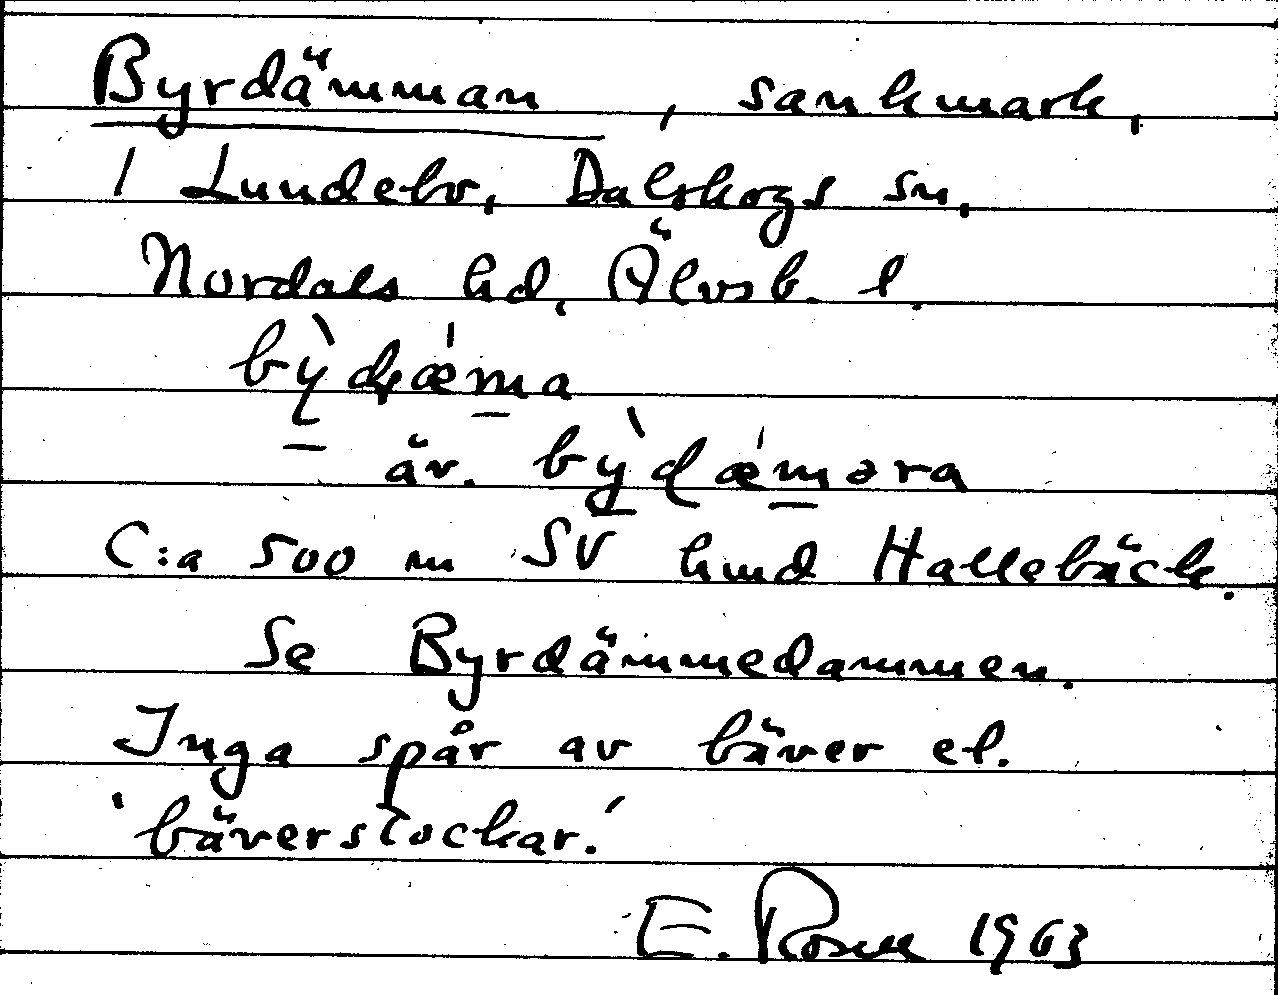 Byrdämman, sankmark,
1 Lundebo, Dalskogs sn,
Nordals hd, Älvsb. l.
bỳdæ̍ma
äv. bỳdæ̍məra
C:a 500 m SV hmd Hallebäck.
Se Byrdämmedammen.
Inga spår av bäver el.
'bäverstockar.'
E. Rosell 1963